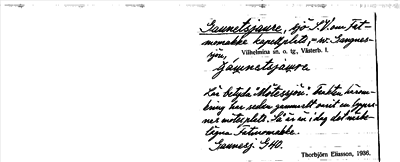 Gaunetsjaure, sjö S.V. om Fat-
momakke kapellplats, - nv.
sjön, Vilhelmina sn. o. tg., Västerb. l.
Lär betyda "Mötessjön". Trakten härom-
kring har sedan gammalt varit en lappar-
nes mötesplats. Så är ju i dag det närbe-
lägna Fatmomakke.
Gaunesj G40.
Thorbjörn Eliasson, 1936.